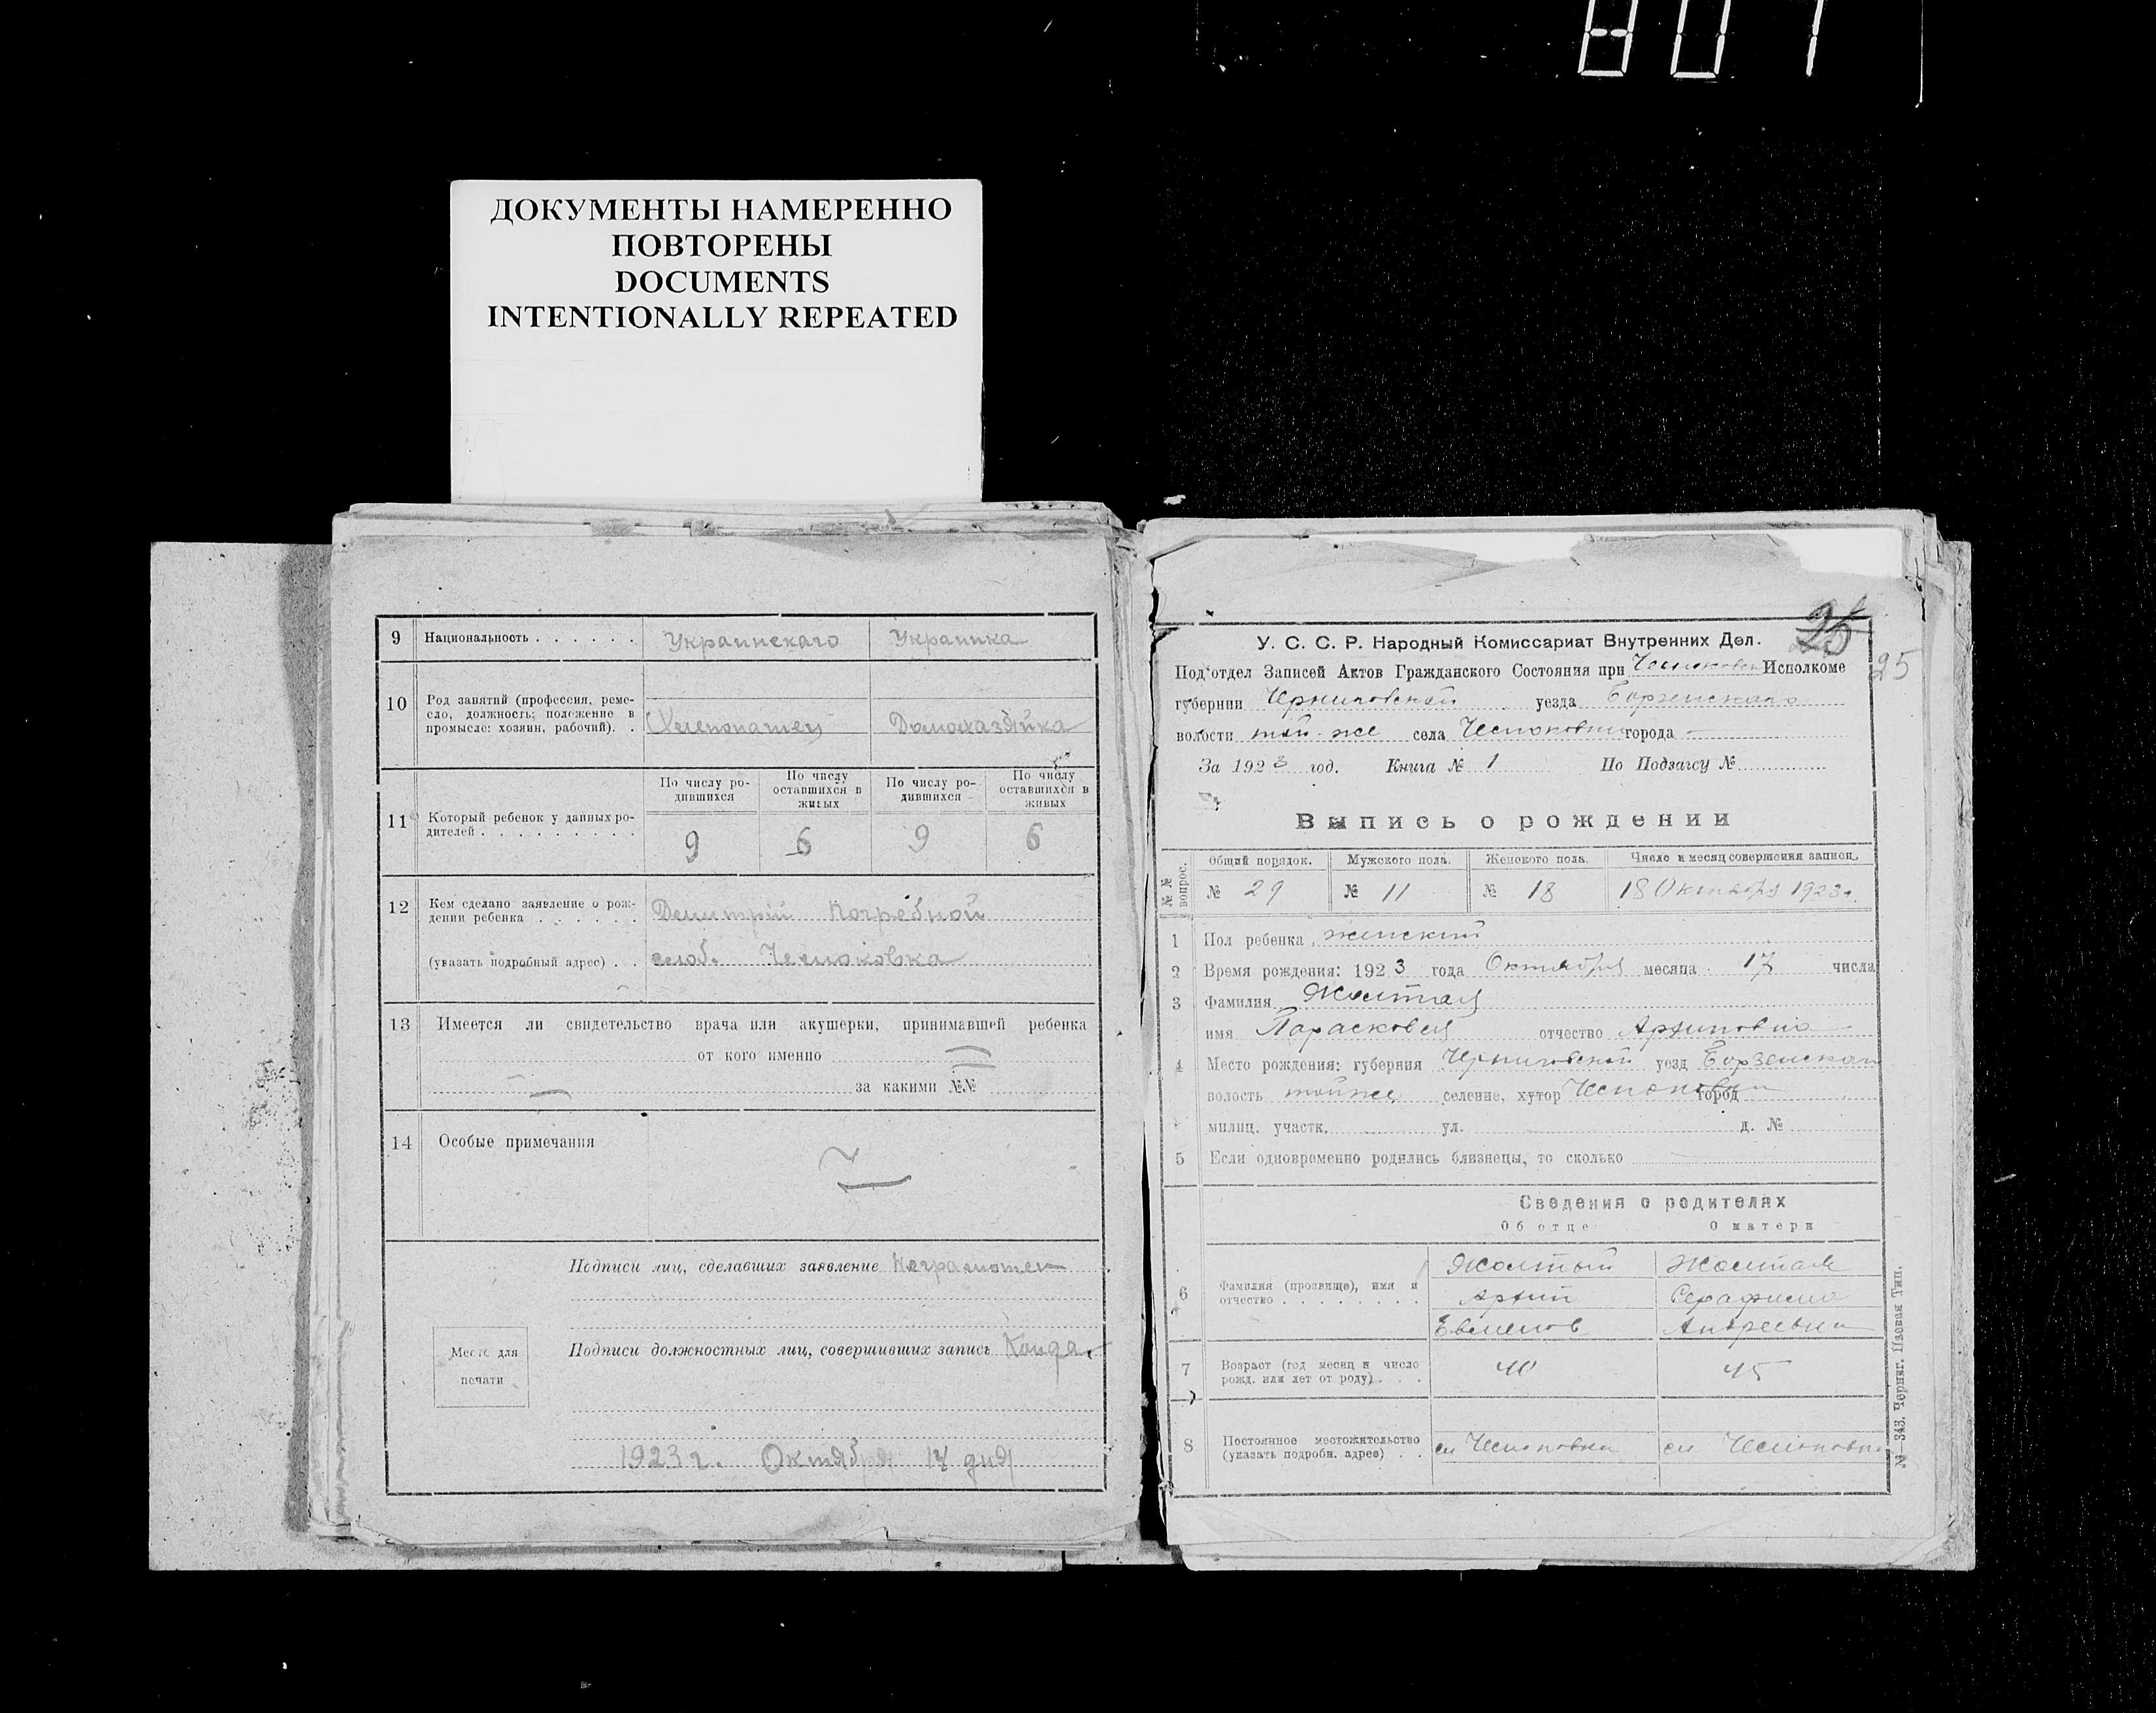 807
ДОКУМЕНТЫ НАМЕРЕННО
ПОВТОРЕНЫ
DOCUMENTS
INTENTIONALLY REPEATED
9 Национальность . . . . . . Украинскаго Украинка
10 Род занятий (профессия, реме-
сло, должность; положение в
промысле: хозяин, рабочий). . Хлепопашец Домохазяйка
11 Который ребенок у данных ро-
дителей . . . . . . . . .
По числу ро-
дившихся
По числу
оставшихся в
живых
По числу ро-
дившихся
По числу
оставшихся в
живых
9 6 9 6
12 Кем сделано заявление о рож-
дении ребенка . . . . . . Демитрий Погребной
(указать подробный адрес) . . слоб.
13 Имеется ли свидетельство врача или акушерки, принимавшей ребенка
от кого именно —
— за какими №№
14 Особые примечания
Подписи лиц, сделавших заявление Неграмотен
Подписи должностных лиц, совершивших запись
Место для
печати
1923 г. Октября дня
25
25
У. С. С. Р. Народный Комиссариат Внутренних Дел.
Под‘отдел Записей Актов Гражданского Состояния при Исполкоме
губернии Черниговской уезда Борзенского
волости той-же села города —
За 1923 год. Книга № 1 По Подзагсу №
Выпись о рождении
№№ вопрос.
Общий порядок. Мужского пола. Женского пола. Число и месяц совершения записи.
№ 29 № 11 № 18 18 Октября 1923 г.
1 Пол ребенка женский
2 Время рождения: 1923 года Октября месяца 17 числа
3 Фамилия Жолтая
имя Парасковея отчество Архиповна
4 Место рождения: губерния Черниговской уезд Борзенскаго
волость тойже селение, хутор город
милиц. участк. ул. д. №
5 Если одновременно родились близнецы, то сколько
Сведения о родителях
Об отце О матери
6 Фамилия (прозвище), имя и
отчество . . . . . . . .
Жолтый Жолтая
Архип Серафима
Евменов Андреевна
7 Возраст (год месяц и число
рожд. или лет от роду) . . . 45
8 Постоянное местожительство
(указать подробн. адрес) . .
№—343. Черниг. Цзевая Тип.